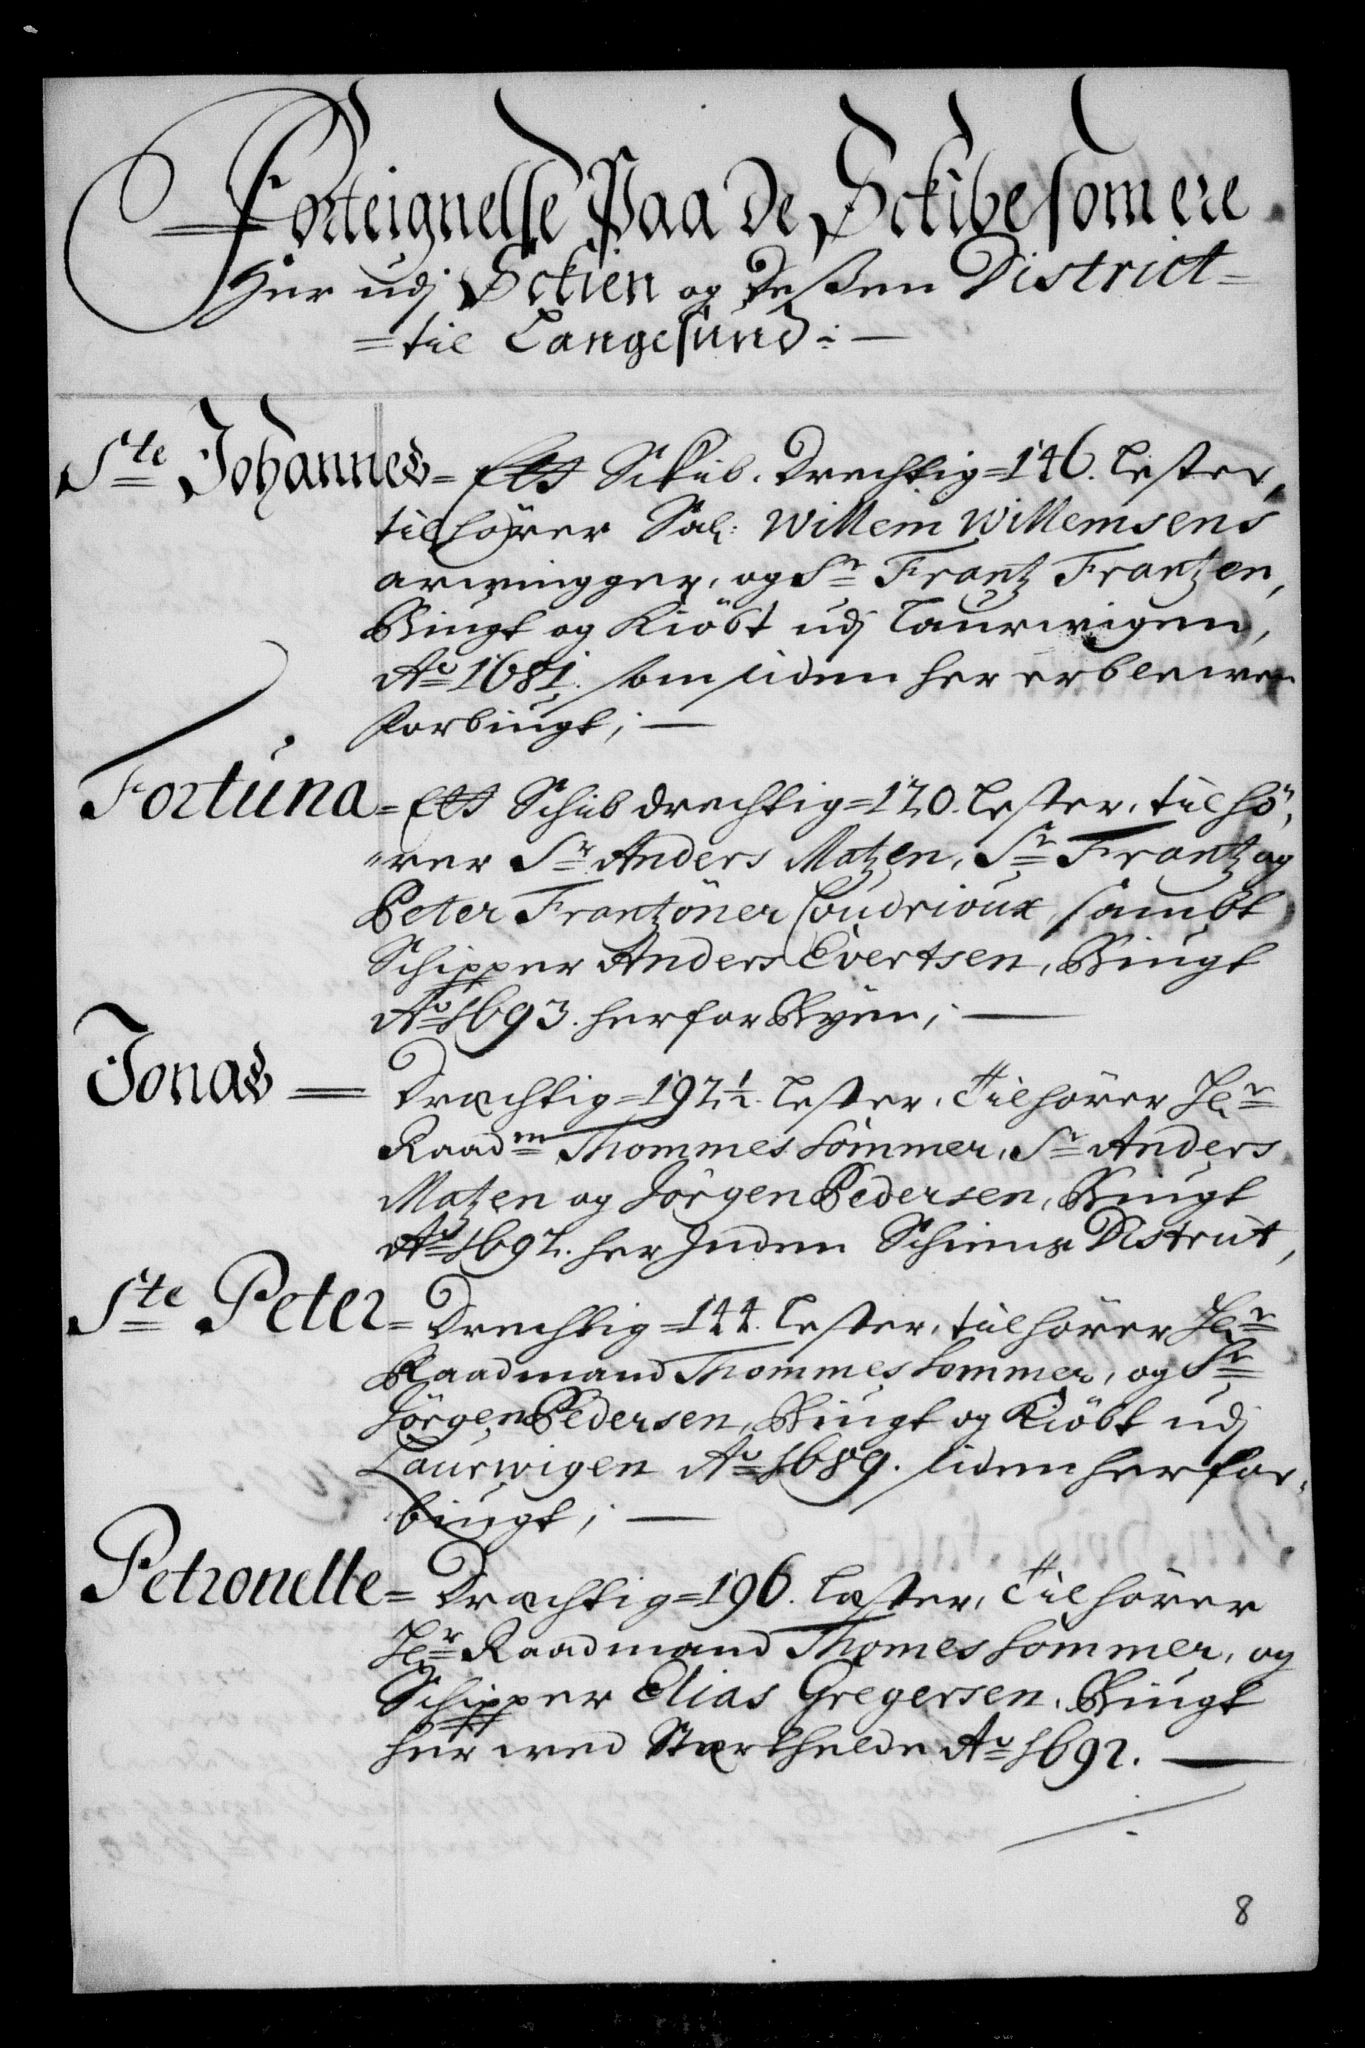 Forteignelse Paa De Sckibe som ere
Her udj Sckien og dessen District=
=til Langesund:—
Ste Johannes= Ett Skib. Drechtig=146. Lester,
tilhörer Sal: Willem Willemsens
arwingger, og Sr Frantz Frantzen,
Bingt og Kiöbt udj Laurwigen,
Ao 1681. som siden her er blewen
forbingt;—
Fortuna= Ett Schib drechtig=120. Lester, tilhö,,
,,rer Sr Anders Matzen, Sr Frantz og
Peter Frantöner Coudrioux, sambt
Schipper Anders Evertsen, Bingt
Ao 1693. her for Byen;—
Jonas= Drechtig=192½. Lester, Tilhörer Hr
Raadm Thommes Sommer, Sr Anders
Matzen og Jörgen Pedersen, Bingt
Ao 1692. her Inden Schiens District,
Ste Peter= Drechtig=144. Lester, tilhörer Hr
Raadmand Thommes Sommer, og Sr
Jörgen Pedersen, Bingt og Kiöbt udj
Laurwigen Ao 1689. siden her for,,
bingt;—
Petronelle= Dræchtig=196. Læster, Tilhörer
Hr Raadmand Thomes Sommer, og
Schipper Elias Gregersen, Bingt
her wed Stærkhelde Ao 1692.—
8